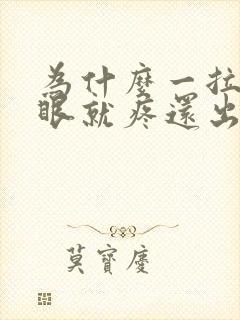 為什麼一拉
眼就疼還出
莫寶慶